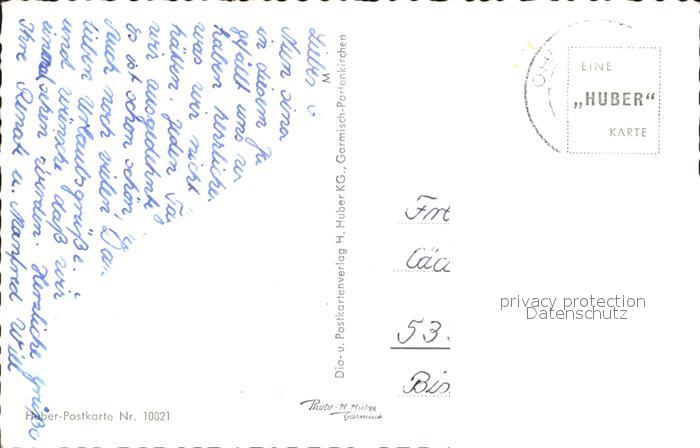 Liebe
Nun sind
in diesem Ja
gefällt uns u.
haben herrliche
was wir nicht
hätten. Jeden Ta
wir ausgedehnte
so ist schon schön,
Auch noch vielen Da
lieben Urlaubsgrüße.
und wünsche daß wir
einmal sehen werden. Herzliche Grüße
Ihre Renate u. Manfred Wid
Dia- u. Postkartenverlag H. Huber KG., Garmisch-Partenkirchen
M
OH
EINE
„HUBER“
KARTE
Fr
Cäc
53
Bis
privacy protection
Datenschutz
Huber-Postkarte Nr. 10821
Photo-H. Huber
Garmisch